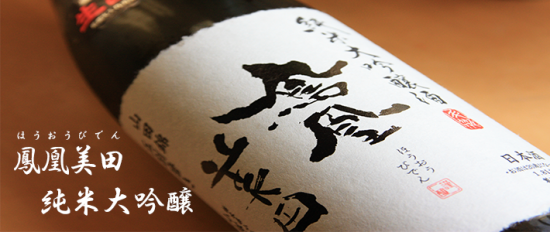 ほうおうびでん
鳳凰美田
純米大吟醸
純米大吟醸酒
鳳凰
美田
ほうおう
びでん
日本酒